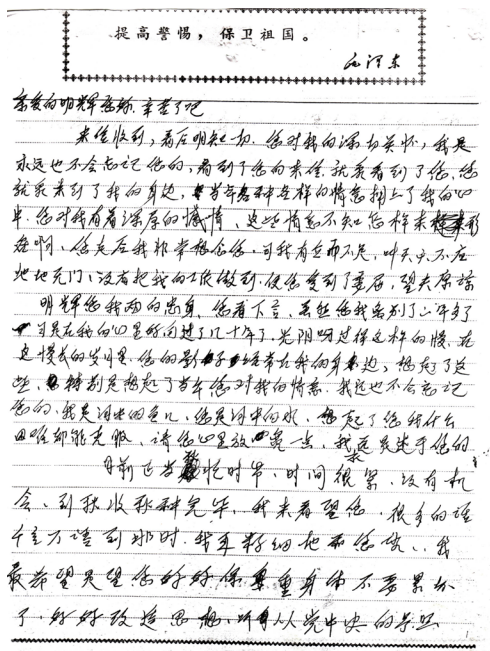 提高警惕，保卫祖国。
毛泽东
亲爱的明辉您好，辛苦了吧
来信收到，看后明知一切，您对我的深切关怀，我是
永远也不会忘记您的，看到了您的来信就象看到了您，您
就象来到了我的身边，各种各样的情意拥上了我的心
中，您对我有着深厚的感情，这些情意不知怎样来形
容啊，您走后我非常想念您，可我有力而不足，叫天天不应
地地无门，没有把我的工作做到，使您受到了委屈，望夫原谅
明辉您我两的忠身，您看下言，虽然您我离别了二年多了
可是在我的心里好向过了几十年了，光阴呀过得这样的慢，在
这慢长的岁月里，您的影子经常在我的身边，想起了这
些，特别是想起了当年您对我的情意，我远也不会忘记
您的，我是河里的鱼儿，您是河中的水，想起了您我什么
困难都能克服，请您心里放宽一点，我还是忠于您的
目前正当繁忙时节，时间很紧，没有机
会，到秋收秋种完毕，我来看望您，很多的话
信不语到那时，我再仔细地和您谈，我
最希望是望您好好保重身体不要累坏
了，好好改造思想，听从党中央的号召